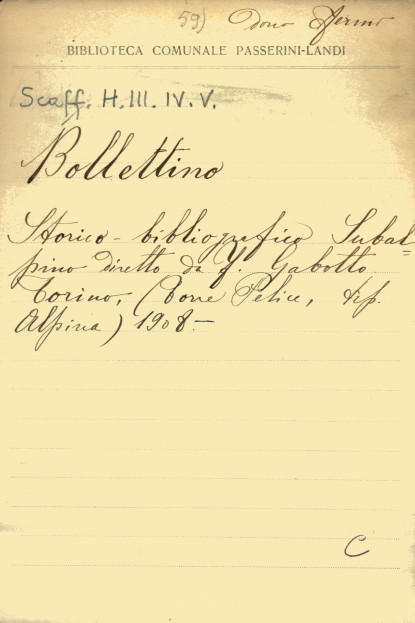 59) Dono Fermi
BIBLIOTECA COMUNALE PASSERINI-LANDI
Scaff. H. III. IV. V.
Bollettino
Storico-bibliografico Subal=
pino diretto da F. Gabotto.
Torino, (Torre Pelice, tip.
Alpina) 1908.—
C